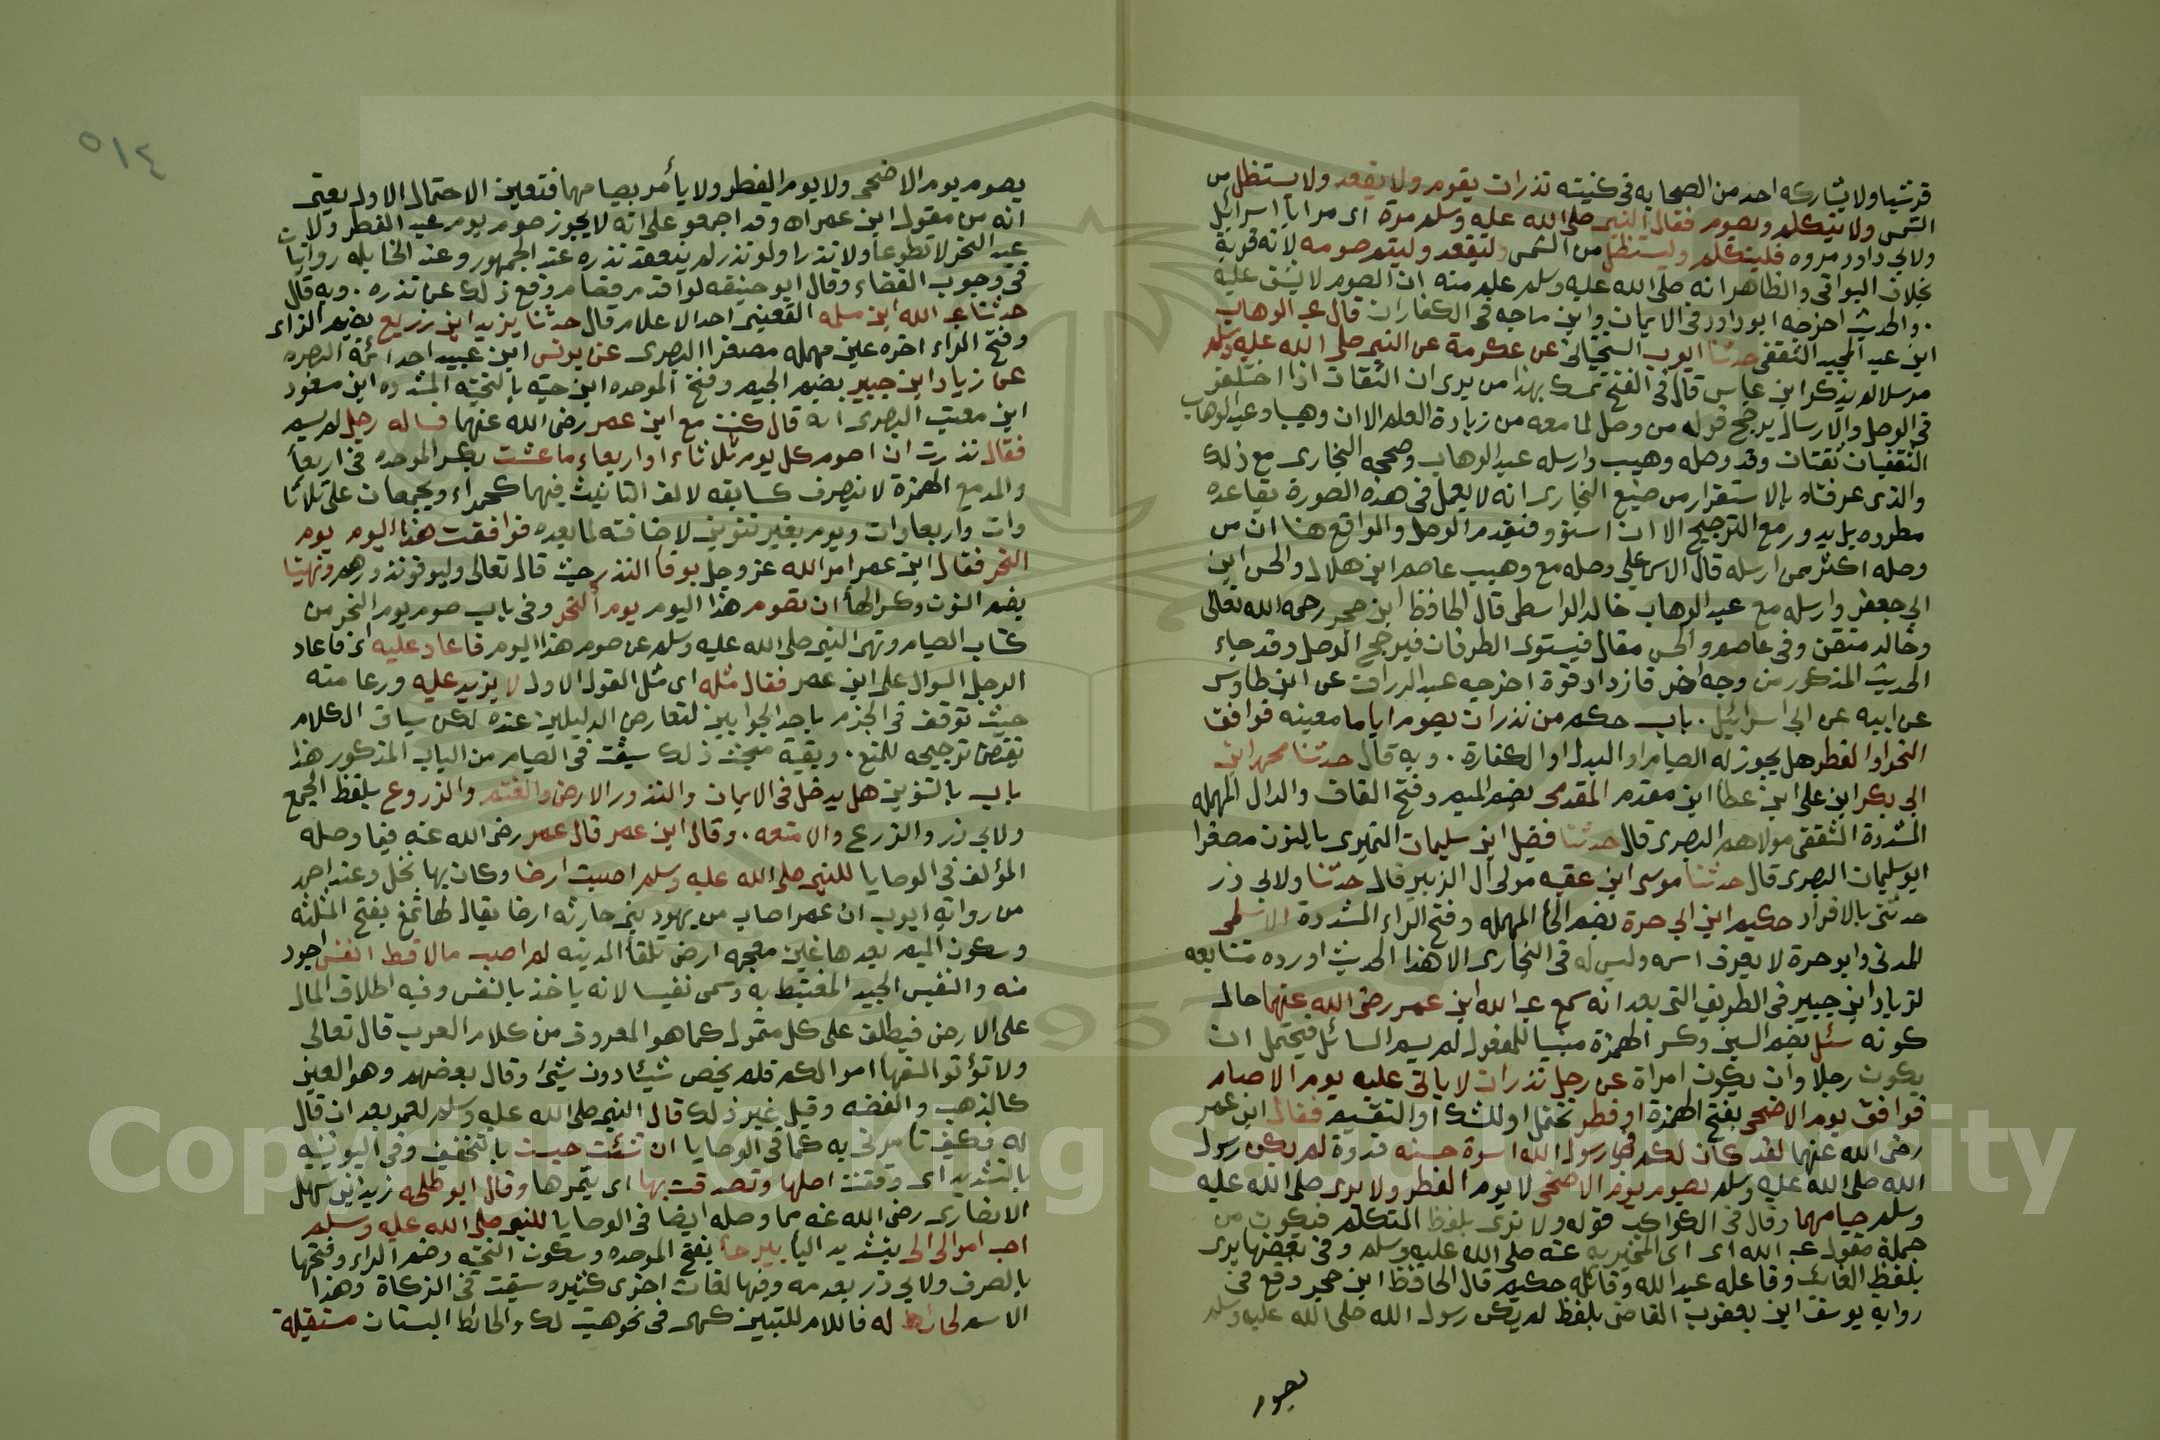 قرشيا ولا يشاركه احد من الصحابه في كنيته نذران يقوم ولا يقعد ولا يستظل من
الشمس ولا يتكلم ويصوم فقال النبي صلى الله عليه وسلم مره اى مر ابا اسرائيل
ولابي داود مروه فليتكلم وليستظل من الشمس وليقعد وليتم صومه لانه قربة
بخلاف البواقى والظاهر انه صلى الله عليه وسلم علم منه ان الصوم لا يشق عليه
. والحديث اخرجه ابو داود فى الايمان وابن ماجه فى الكفارات قال عبد الوهاب
ابن عبد المجيد الثقفى حدثنا ايوب السختيانى عن عكرمة عن النبى صلى الله عليه وسلم
مرسلا لم يذكر ابن عباس قال فى الفتح تمسك بهذا من يرى ان الثقات اذا اختلفو
فى الوصل والارسال يرجح قوله من وصل لما معه من زيادة العلم الا ان وهيبا وعبد الوهاب
الثقفيان ثقتان وقد وصله وهيب وارسله عبد الوهاب وصححه البخارى مع ذلك
والذى عرفناه بالاستقرار من صنيع البخارى انه لا يعمل فى هذه الصورة بقاعده
مطرده بل يدور مع الترجيح الا ان استوو فيقدم الوصل والواقع هنا ان من
وصله اكثر ممن ارسله قال الاسماعيلي وصله مع وهيب عاصم ابن هلال والحسن ابن
ابى جعفر وارسله مع عبد الوهاب خالد الواسطى قال الحافظ ابن حجر رحمه الله تعالى
وخالد متقن وفى عاصم والحسن مقال فيستوى الطرفان فيرجح الوصل وقد جاء
الحديث المذكور من وجه اخر فازداد قوة اخرجه عبد الرزاق عن ابن طاوس
عن ابيه عن ابى اسرائيل . باب حكم من نذر ان يصوم اياما معينه فوافق
النحر او الفطر هل يجوز له الصيام او البدل او الكفارة . وبه قال حدثنا محمد ابن
ابى بكر ابن على ابن عطا ابن مقدم المقدمى بضم الميم وفتح القاف والدال المهمله
المشددة الثقفى مولاهم البصرى قال حدثنا فضيل ابن سليمان النميرى بالنون مصغرا
ابو سليمان البصرى قال حدثنا موسى ابن عقبه مولى آل الزبير قال حدثنا ولابى ذر
حدثنى بالافراد حكيم ابن ابى حرة بضم الحا المهمله وفتح الراء المشددة الاسلمى
المدنى وابو حرة لا يعرف اسمه وليس له فى البخارى الا هذا الحديث اورده متابعه
لزياد ابن جبير فى الطريق التى بعد انه سمع عبد الله ابن عمر رضى الله عنهما حالـ
كونه سئل بضم السين وكسر الهمزة مبنيا للمفعول لم يسم السائل فيحتمل ان
يكون رجلا وان يكون امراة عن رجل نذر ان لا ياتى عليه يوم الا صام
فوافق يوم الاضحى بفتح الهمزة او فطر تحتمل او للشك او التقسيم فقال ابن عمر
رضى الله عنهما لقد كان لكم فى رسول الله اسوة حسنه قدوة لم يكن رسول
الله صلى الله عليه وسلم يصوم يوم الاضحى لا يوم الفطر ولا يرى صلى الله عليه
وسلم صيامهما وقال فى الكواكب قوله ولا نرى بلفظ المتكلم فيكون من
جملة مقول عبد الله اى اى المخبر به عنه صلى الله عليه وسلم وفى بعضها يرى
بلفظ الغائب وفاعله عبد الله وقائله حكيم قال الحافظ ابن حجر وقع فى
روايه يوسف ابن يعقوب القاضى بلفظ لم يكن رسول الله صلى الله عليه وسلم
يصوم
٥١٤
يصوم يوم الاضحى ولا يوم الفطر ولا يأمر بصيامهما فتعين الاحتمال الاول يعنى
انه من مقول ابن عمر اه وقد اجمعو على انه لا يجوز صوم يوم عيد الفطر ولا
عيد النحر لا تطوعا ولا نذرا ولو نذر لم ينعقد نذره عند الجمهور وعند الحنابله روايتان
فى وجوب القضاء وقال ابو حنيفه لو اقدم فصام وقع ذلك عن نذره . وبه قال
حدثنا عبد الله ابن مسلمه القعنبى احد الاعلام قال حدثنا يزيد ابن زريع بضم الزاى
وفتح الراء اخره عين مهمله مصغرا البصرى عن يونس ابن عبيد احد ائمة البصره
عن زياد ابن جبير بضم الجيم وفتح الموحده ابن حيه بالتحتيه المشدده ابن مسعود
ابن معتب البصرى انه قال كنت مع ابن عمر رضى الله عنهما فساله رجل لم يسم
فقال نذرت ان اصوم كل يوم ثلاثاء او اربعاء ما عشت بكسر الموحده فى اربعا
والمد مع الهمزة لا ينصرف كسابقه لالف التانيث فيهما كحمراء ويجمعان على ثلاثا
وات واربعاوات ويوم بغير تنوين لاضافته لما بعده فوافقت هذا اليوم يوم
النحر فقال ابن عمر امر الله عز وجل بوفا النذر حيث قال تعالى وليوفو نذورهم ونهينا
بضم النون وكسر الها ان نصوم هذا اليوم يوم النحر وفى باب صوم يوم النحر من
كتاب الصيام ونهى النبى صلى الله عليه وسلم عن صوم هذا اليوم فاعاد عليه اى فاعاد
الرجل السوال على ابن عمر فقال مثله اى مثل القول الاول لا يزيد عليه ورعا منه
حيث توقف فى الجزم باحد الجوابين لتعارض الدليلين عنده لكن سياق الكلام
يقتضى ترجيحه للمنع . وبقية مبحث ذلك سبقت فى الصيام من الباب المذكور هذا
باب بالتنوين هل يدخل فى الايمان والنذور الارض والغنم والزروع بلفظ الجمع
ولابى ذر والزرع والامتعه . وقال ابن عمر قال عمر رضى الله عنه فيما وصله
المؤلف فى الوصايا للنبى صلى الله عليه وسلم اصبت ارضا وكان بها نخل وعند احمد
من روايه ايوب ان عمر اصاب من يهود بنى حارثه ارضا يقال لها ثمغ بفتح المثلثه
وسكون الميم بعدها غين معجمه ارض تلقا المدينه لم اصب مالا قط انفس اجود
منه والنفيس الجيد المغتبط به وسمى نفيسا لانه ياخذ بالنفس وفيه اطلاق المال
على الارض فيطلق على كل متمول كما هو المعروف من كلام العرب قال تعالى
ولا تؤتو السفها اموالكم فلم يخص شيئا دون شيئ وقال بعضهم وهو العين
كالذهب والفضه وقيل غير ذلك قال النبى صلى الله عليه وسلم لعمر بعد ان قال
له فكيف تامرنى به كما فى الوصايا ان شئت حبست بالتخفيف وفى اليونينيه
بالتشديد اى وقفت اصلها وتصدقت بها اى بثمرها وقال ابو طلحه زيد ابن سهل
الانصارى رضى الله عنه مما وصله ايضا فى الوصايا للنبى صلى الله عليه وسلم
احب اموالى الى بتشديد اليا بيرحا بفتح الموحده وسكون التحتيه وضم الراء وفتحها
بالصرف ولابى ذر بعدمه وفيها لغات اخرى كثيره سبقت فى الزكاة وهذا
الاسم لحائط له فاللام للتبيين كهى فى نحو هيت لك والحائط البستان مستقبلة